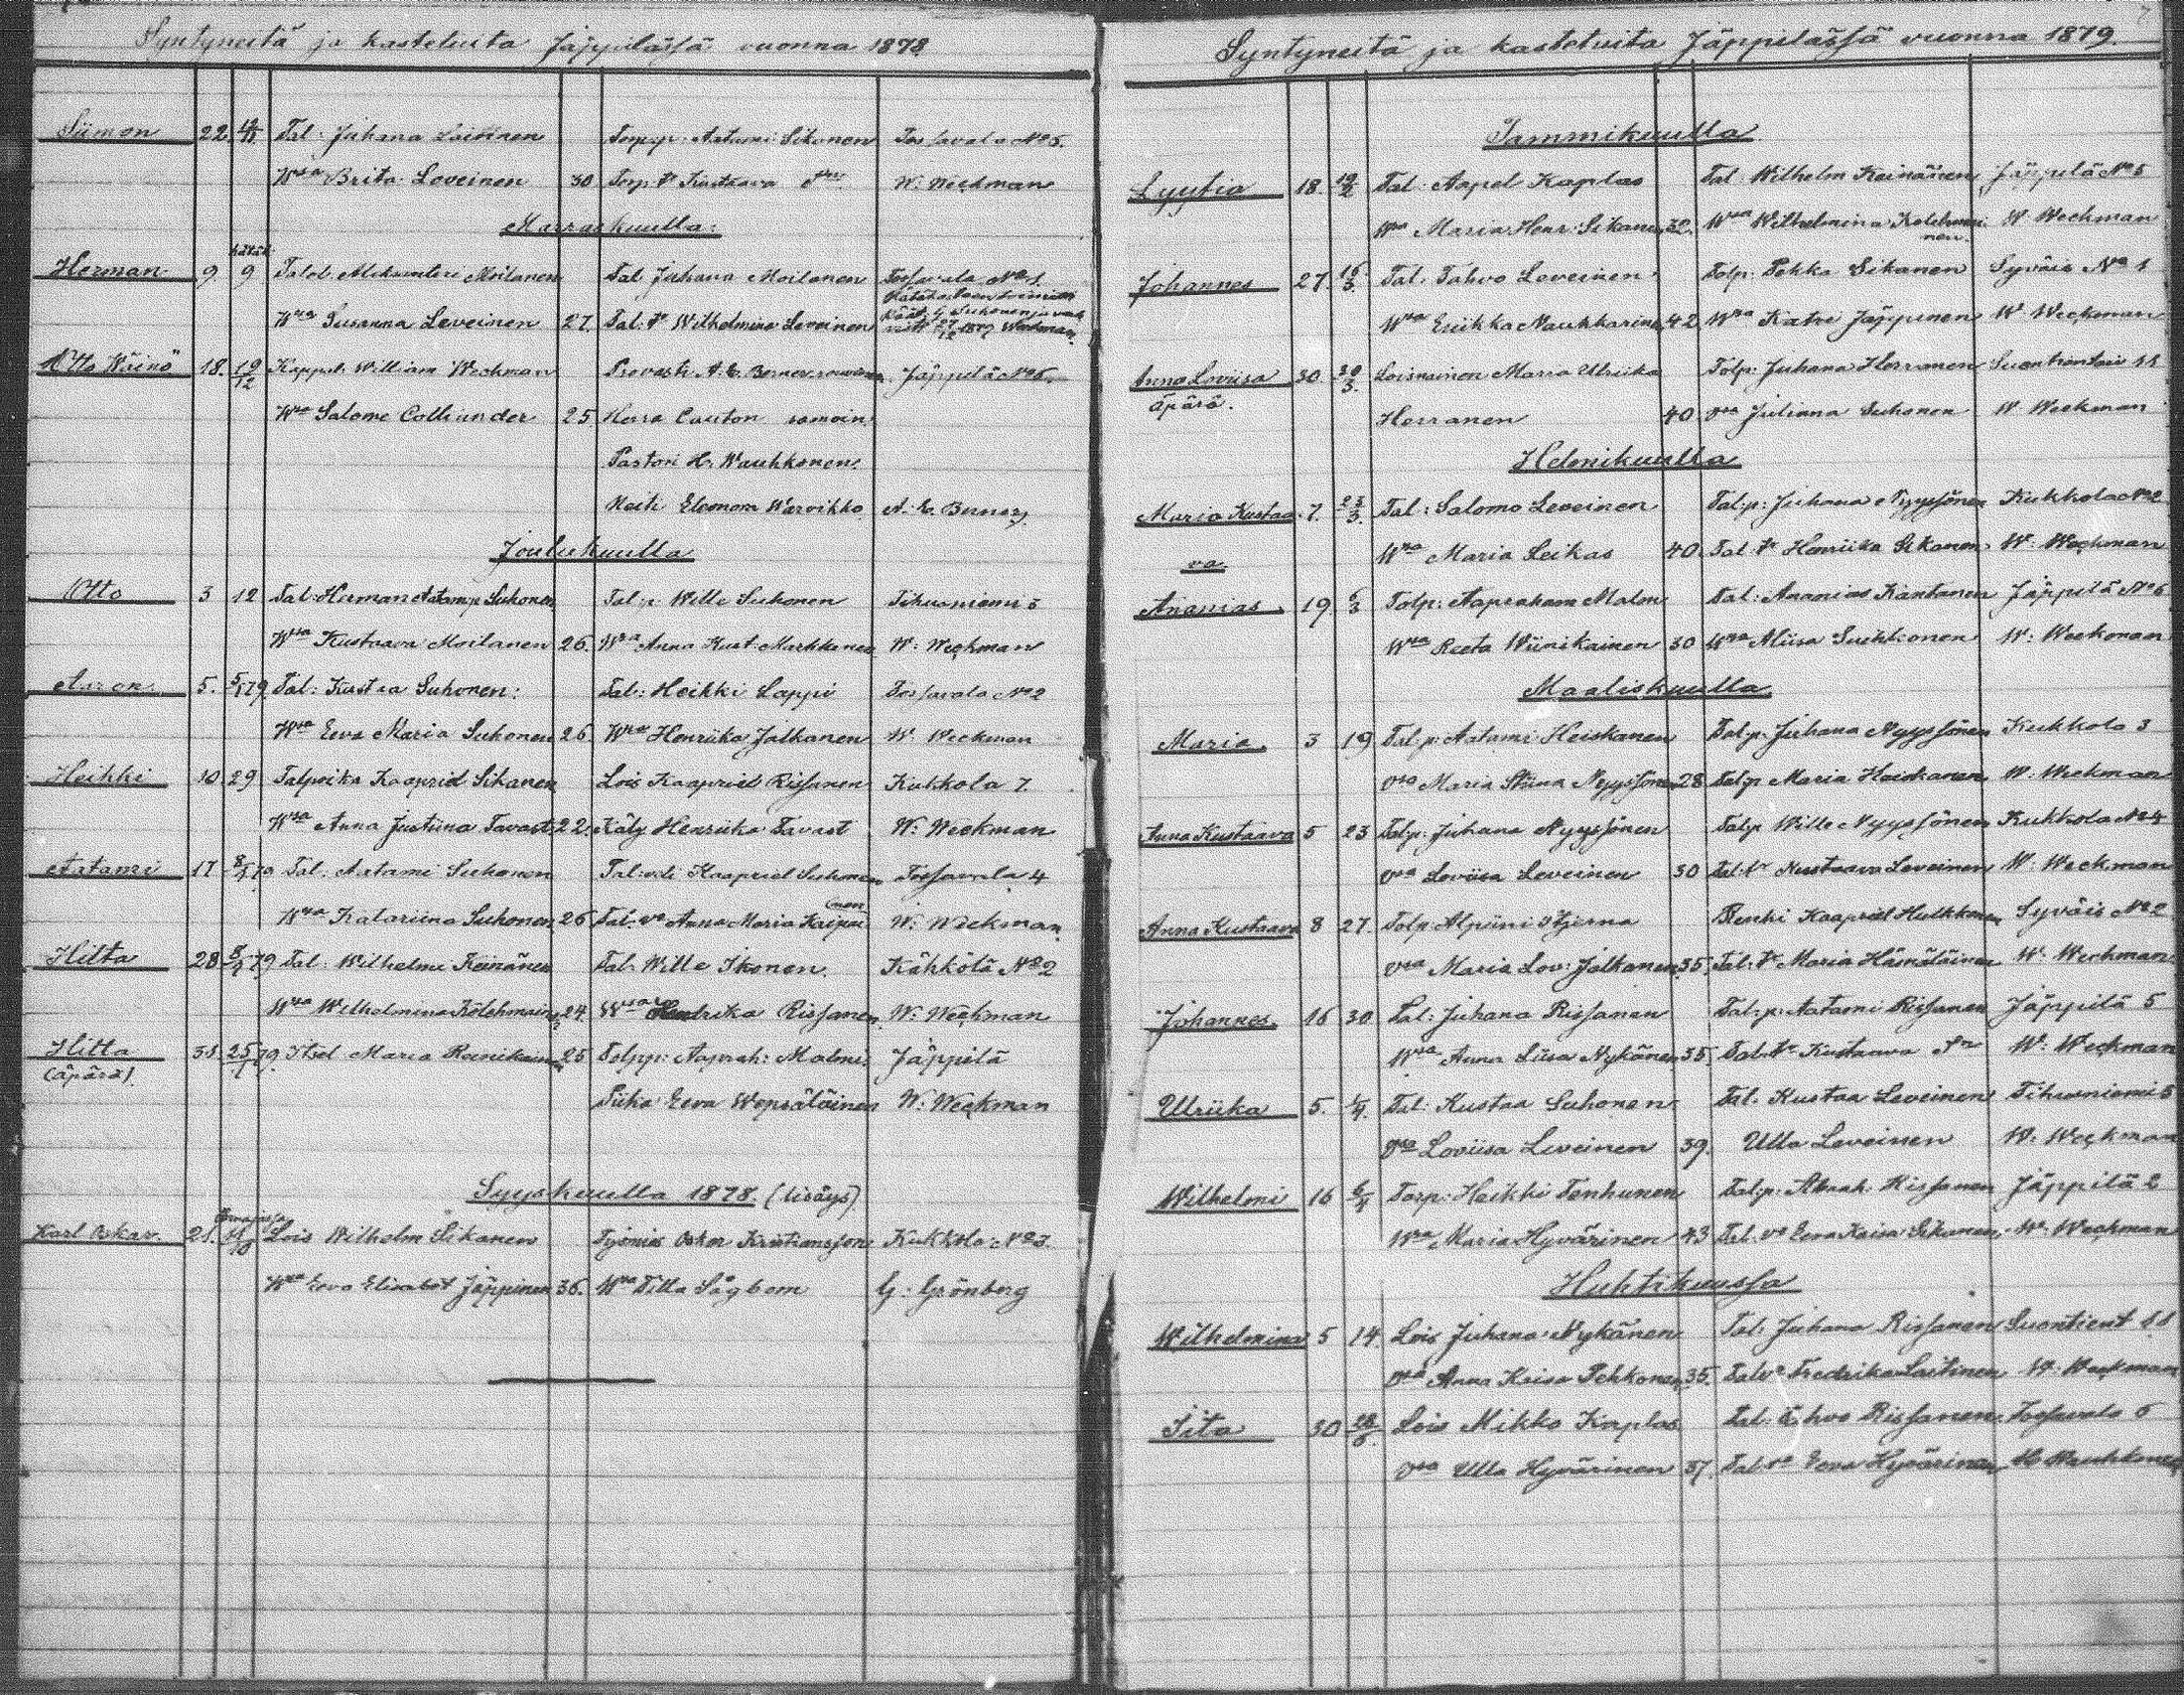 Syntyneitä ja kastetuita Jäppilässä vuonna 1878
Siimon 22. Tal: Juhana Toppp: Aatami Sikanen Tossavala No 5.
Wsa Brita Loveinen 30 Torp. Vr Kustaava W. Weckman
Marraskuulla:
Herman 9 hätäk 9 Talol. Aleksanteri Moilanen Tal Juhana Moilanen Tossavala No 1.
Wsa Susanna Leveinen 27. Tal: Vr Wilhelmina Leveinen 1879 Weckman
Otto Wäinö 18. 19/12 Kappal. William Weckman Provasti A. E. Berner rouvineen Jäppilä No 5.
Wsa Salome Colliander 25 Herra Cauton samoin
Pastori H. Wauhkonen.
Neiti Eleonora Warvikko A. E. Berner
Joulukuulla
Otto 3 12 Tal: Herman Aatamp Suhonen Tal:p. Wille Suhonen Tihusniemi 5
Wsa Kustaava Moilanen 26. Wsa Anna Kust. Markkanen W. Weckman
Aaron 5. 5/1 79 Tal: Kustaa Suhonen: Tal: Heikki Lappi Tossavala No 2
Wsa Eeva Maria Suhonen 26. Wsa Henriika Jalkanen W. Weckman
Heikki 10. 29 Talpoika Kaaprid Sikanen Lois Kaapriel Rissanen Kukkola 7.
Wsa Anna Justiina Tavast. 22. Käly Henriika Tavast W. Weckman
Aatami 17 8/1 79 Tal. Aatami Suhonen Tal: veli Kaapriel Suhonen Tossavala 4
Wsa Katariina Suhonen 26 Tal. vo Anna Maria Kaipai nen W. Weckman
Hilta 28 8/1 79 Tal: Wilhelmi Keinänen Tal: Wille Ikonen. Kähkölä No 2
Wsa Wilhelmina Kolehmain 24. Wsa Hendrika Rissanen W. Weckman
Hilta 31. 25/1 79. Itsel Maria Reinikain 25 Tolpp: Aaprah: Malmi. Jäppilä
(äpärä).
Piika Eeva Wepsäläinen W. Weckman
Syyskuulla 1878. (lisäys)
Karl Oskar. 21. 11/10 Lois Wilhelm Sikanen Työmies Oskar Kristiansson Kukkola: No 3.
Wsa Eeva Elisabet Jäppinen 36. Wsa Tilla Sågbom G. Grönberg
Syntyneitä ja kastetuita Jäppilässä vuonna 1879.
Tammikuulla
Lyytia 18. 19/2 Tal: Aapel Kaplas Tal. Wilhelm Keinänen Jäppilä No 5
Wsa Maria Henr: Sikanen 32. Wsa Wilhelmina Kolehmai nen. W Weckman
Johannes 27. 16/3. Tal. Tahvo Leveinen Tolp: Pekka Sikanen Syväis No 1
Wsa Eriikka Naukkarinen 42 Wsa Katri Jäppinen W Weckman
Anna Loviisa 30. 30/3. Loisnainen Maria Ulriika Tolp: Juhana Herranen Suontientaus 11
äpärä.
Herranen 40 Vsa Juliana Suhonen W Weckman
Helmikuulla
Maria Kustaa 7. 23/3. Tal: Salomo Leveinen Talp: Juhana Nyyssönen Kukkola No 2
va. Wsa Maria Seikas 40. Tal. Vr Henriika Sikanen W. Weckman
Ananias 19. 6/3 Tolp: Aaprahami Malm Tal: Ananias Kantanen Jäppilä No 6
Wsa Reeta Wiinikainen 30 Wsa Miisa Suihkonen W. Weckman
Maaliskuulla
Maria 3 19 Tal:p: Aatami Heiskanen Tal:p: Juhana Nyyssönen Kukkola 3
Vsa Maria Stiina Nyyssönen 28 Tal:p Maria Heiskanen W. Weckman
Anna Kustaava 5 23 Talp: Juhana Nyyssönen Talp Wille Nyyssönen Kukkola No 4
Vsa Loviisa Leveinen 30 Tal: Vr Kustaava Leveinen W. Weckman
Anna Kustaava 8 27. Tolp: Alpiini Stjerna Renki Kaapriel Hulkkonen Syväis No 2
Vsa Maria Lov: Jalkanen 35. Tal: Vr Maria Hämäläinen W. Weckman
Johannes 16 30 Tal: Juhana Rissanen Tal:p: Aatami Rissanen Jäppilä 5
Wsa Anna Liisa Nykänen 35. Tal: Vr Kustaava W. Weckman
Ulriika 5. 1/4. Tal: Kustaa Suhonen Tal. Kustaa Leveinen Tihusniemi 5
Vsa Loviisa Leveinen 39. Ulla Leveinen W. Weckman
Wilhelmi 16 6/4 Torp: Heikki Tenhunen Tal:p: Abrah. Rissanen Jäppilä 2
Wsa Maria Hyvärinen 43 Tal. vo Eeva Kaisa Sikanen W. Weckman
Huhtikuussa
Wilhelmina 5 14. Lois Juhana Nykänen Tal: Juhana Rissanen Suontient 11
Vsa Anna Kaisa Pehkonen 35. Talvr Fredrika Laitinen W. Weckman
Iita 30 28/6. Lois Mikko Kaplas Tal. Tahvo Rissanen Tossavala 5
Vsa Ulla Hyvärinen 37. Tal. va Eeva Hyvärinen H Wauhkonen